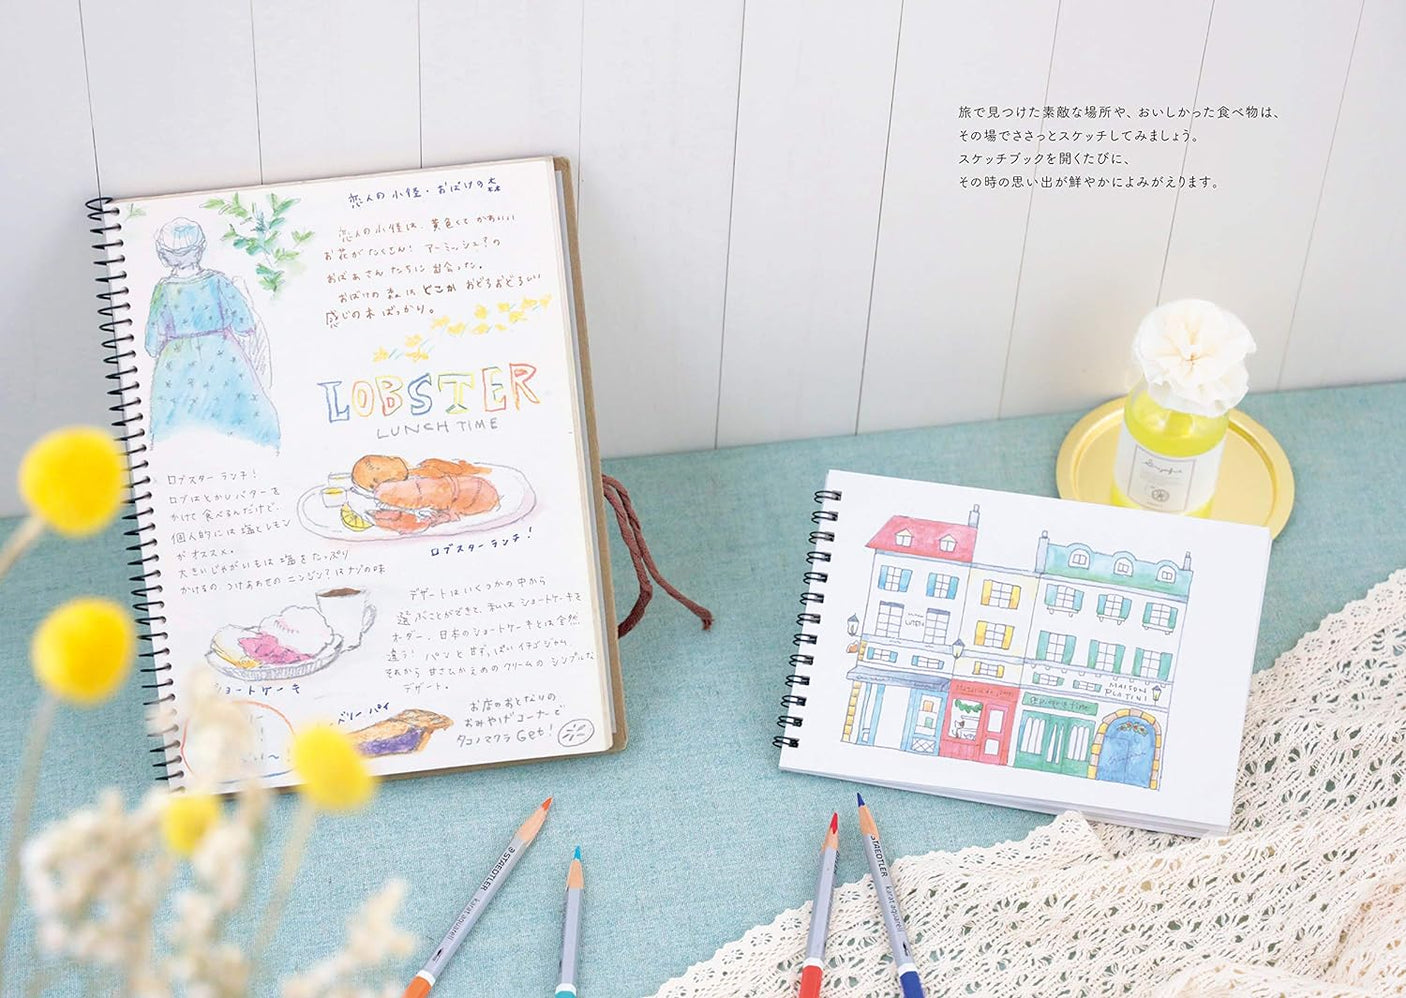 旅で見つけた素敵な場所や、おいしかった食べ物は、
その場でささっとスケッチしてみましょう。
スケッチブックを開くたびに、
その時の思い出が鮮やかによみがえります。
恋人の小径・おばけの森
恋人の小径は、黄色くてかわいい
お花がたくさん！アーミッシュ？の
おばあさんたちに出会った。
おばけの森はどこかおどろおどろしい
感じの木ばっかり。
LOBSTER
LUNCH TIME
ロブスターランチ！
ロブはとかしバターを
かけて食べるんだけど、
個人的には塩とレモン
がオススメ。
大きいじゃがいもは塩をたっぷり
かけるの つけあわせのニンジン？はナゾの味
ロブスターランチ！
デザートはいくつかの中から
選ぶことができて、ショートケーキを
オーダー。日本のショートケーキとは全然
違う！パンと甘ずっぱいイチゴジャム、
それから甘さひかえめのクリームの シンプルな
デザート。
ショートケーキ
ベリーパイ
お店のおとなりの
おみやげコーナーで
タコノマクラ Get！
MAISON
PLOTINI
STAEDTLER
karat aquarell
STAEDTLER
karat aquarell